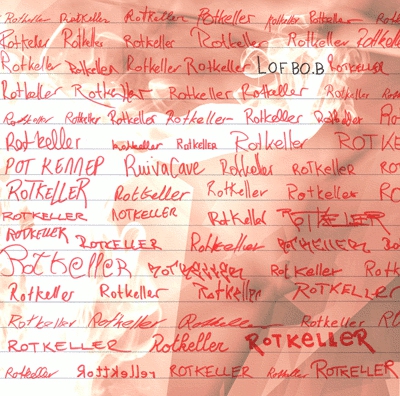 Rotkeller Rotkeller Rotkeller Rotkeller Rotkeller Rotkeller
Rotkeller Rotkeller Rotkeller Rotkeller Rotkeller Rotkeller
Rotkeller Rotkeller Rotkeller Rotkeller LOFBO.B ROTKELLER
Rotkeller Rotkeller Rotkeller Rotkeller Rotkeller
Rotkeller Rotkeller Rotkeller Rotkeller Rotkeller Rotkeller
Rotkeller Rotkeller ROTKELLER Rotkeller ROTKE
РОТ КЕЛЛЕР RuivaCave Rotkeller ROTKELLER
ROTKELLER Rotkeller Rotkeller Rotkeller
ROTKELLER ROTKELLER Rotkeller ROTKELLER
ROTKELLER ROTKELLER Rotkeller ROTKELLER
Rotkeller Rotkeller
Rotkeller Rotkeller Rotkeller ROTKELLER
Rotkeller Rotkeller Rotkeller Rotkeller
ROTKELLER Rotkeller ROTKELLER
Rotkeller Rotkeller ROTKELLER Rotkeller ROTKELLER